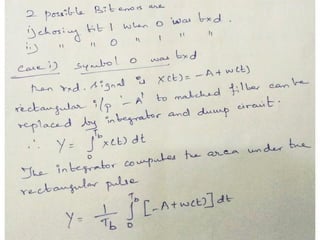 2 possible Bit errors are
i) choosing bit 1 when 0 was txd.
ii) " " 0 " 1 " "
case i) symbol 0 was txd
then rxd. signal is x(t) = -A + w(t)
rectangular i/p '-A' to matched filter can be
replaced by integrator and dump circuit.
∴ Y = ∫₀^Tb x(t) dt
The integrator computes the area under the
rectangular pulse
Y = 1/Tb ∫₀^Tb [-A + w(t)] dt